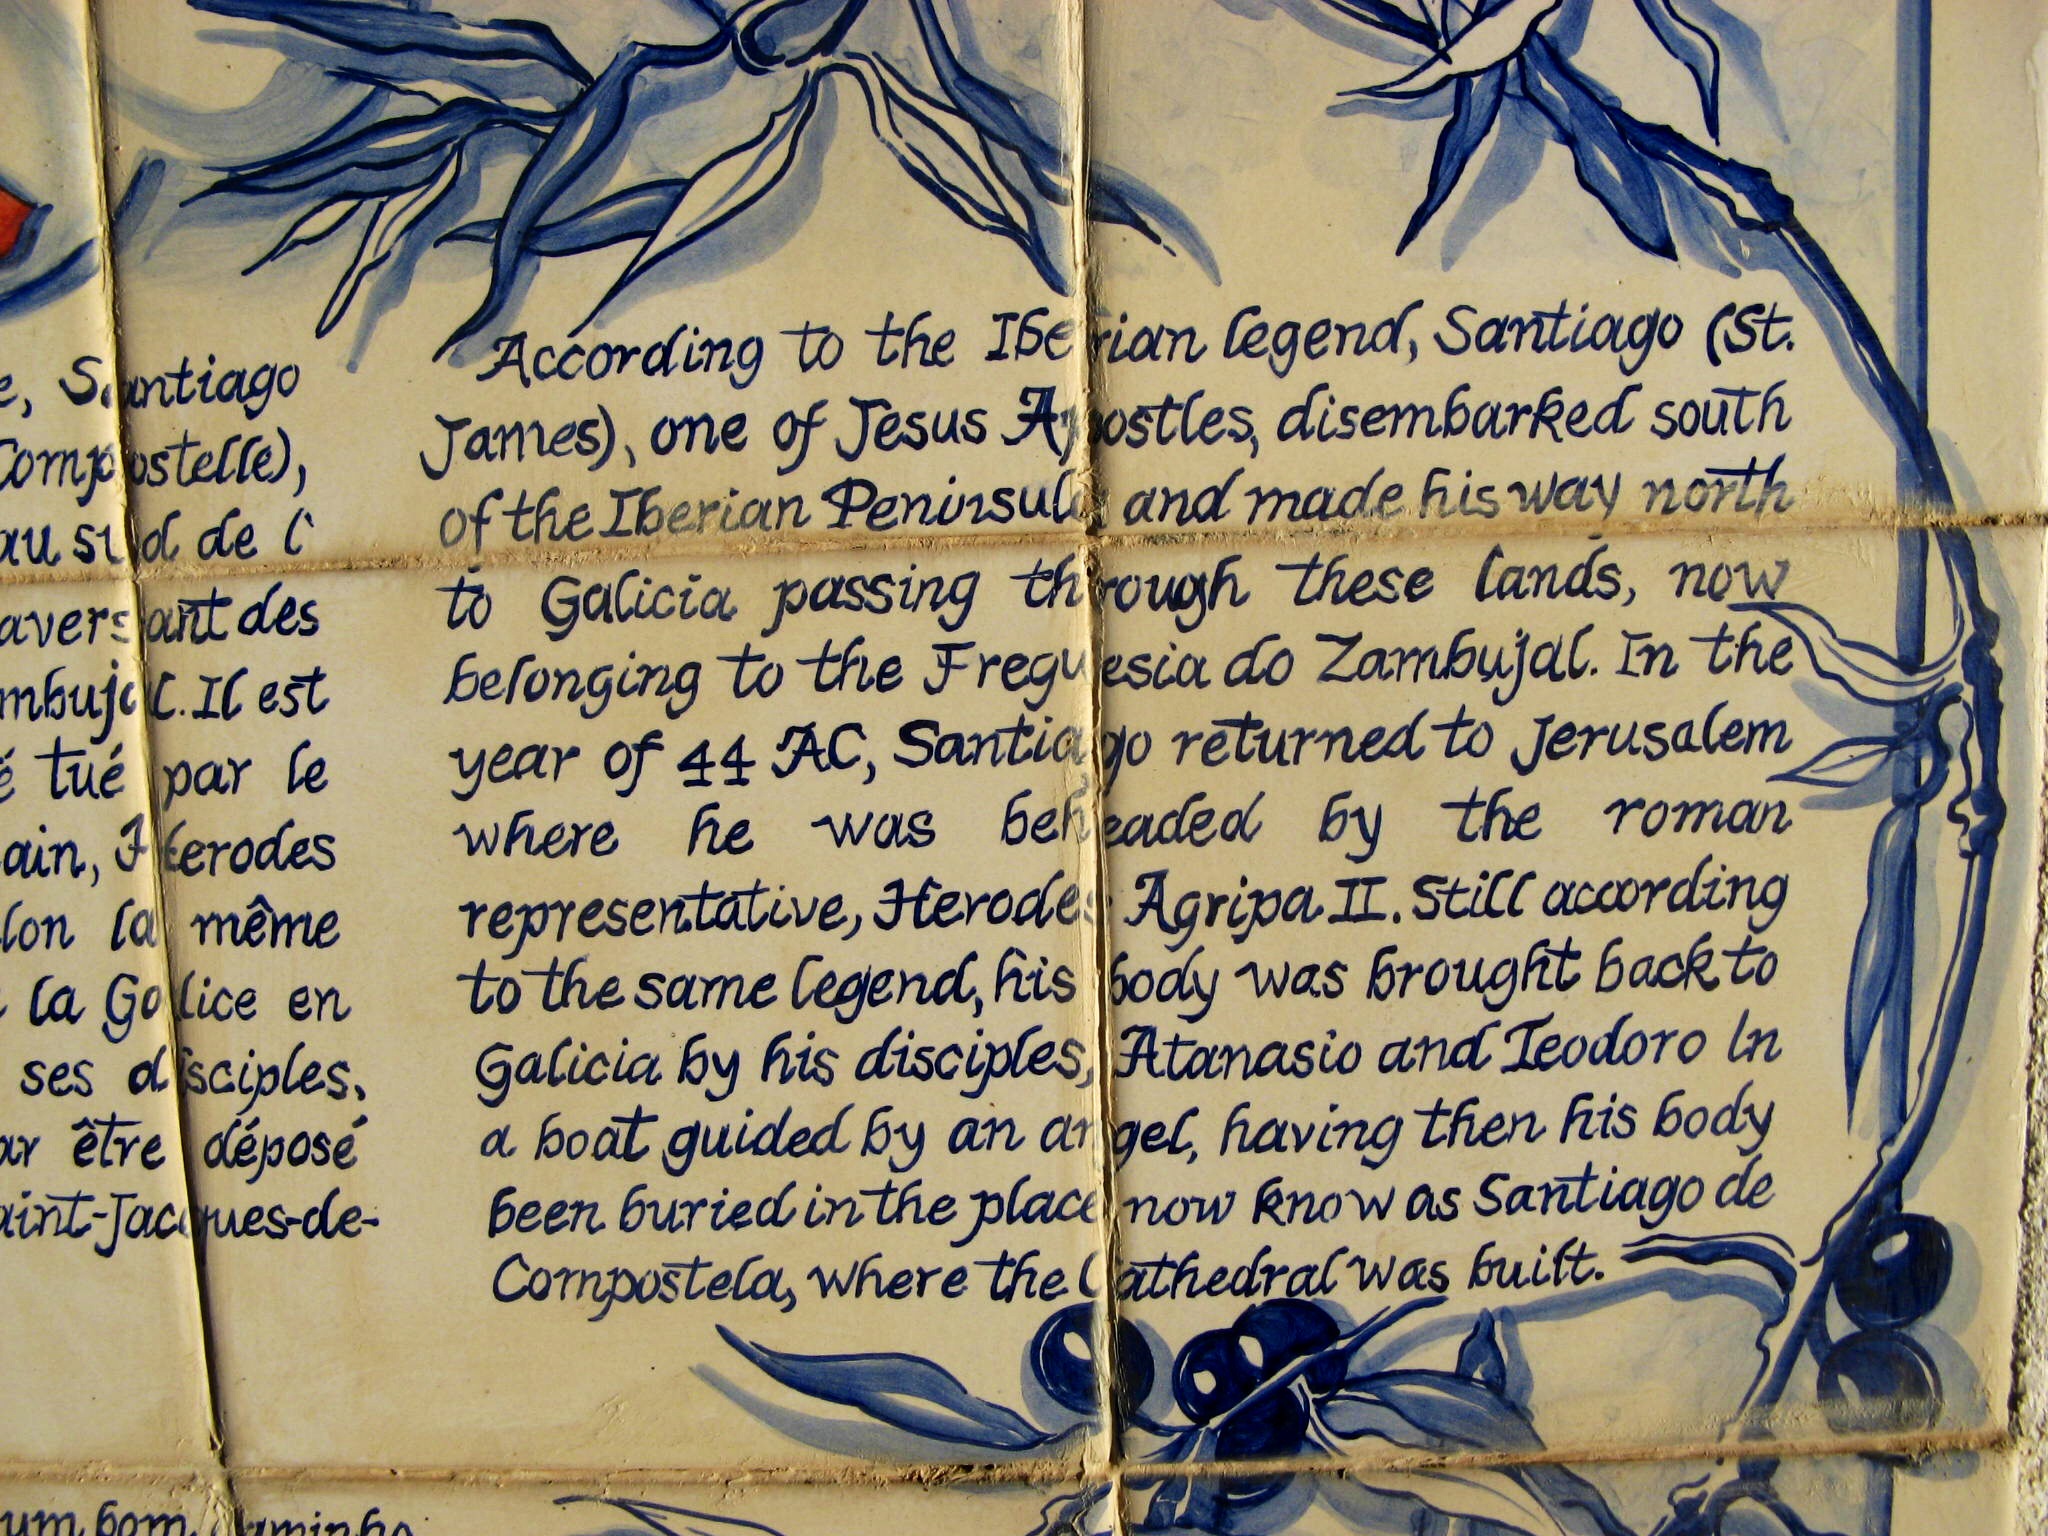 According to the Iberian legend, Santiago (St.
James), one of Jesus Apostles, disembarked south
of the Iberian Peninsula and made his way north
to Galicia passing through these lands, now
belonging to the Freguesia do Zambujal. In the
year of 44 AC, Santiago returned to Jerusalem
where he was beheaded by the roman
representative, Herodes Agripa II. Still according
to the same legend, his body was brought back to
Galicia by his disciples, Atanasio and Teodoro In
a boat guided by an angel, having then his body
been buried in the place now know as Santiago de
Compostela, where the Cathedral was built.
e, Santiago
Compostelle),
au sud de l'
aversant des
mbujal. Il est
é tué par le
ain, Herodes
lon la même
la Galice en
ses disciples,
ar être déposé
aint-Jacques-de-
um bom caminho